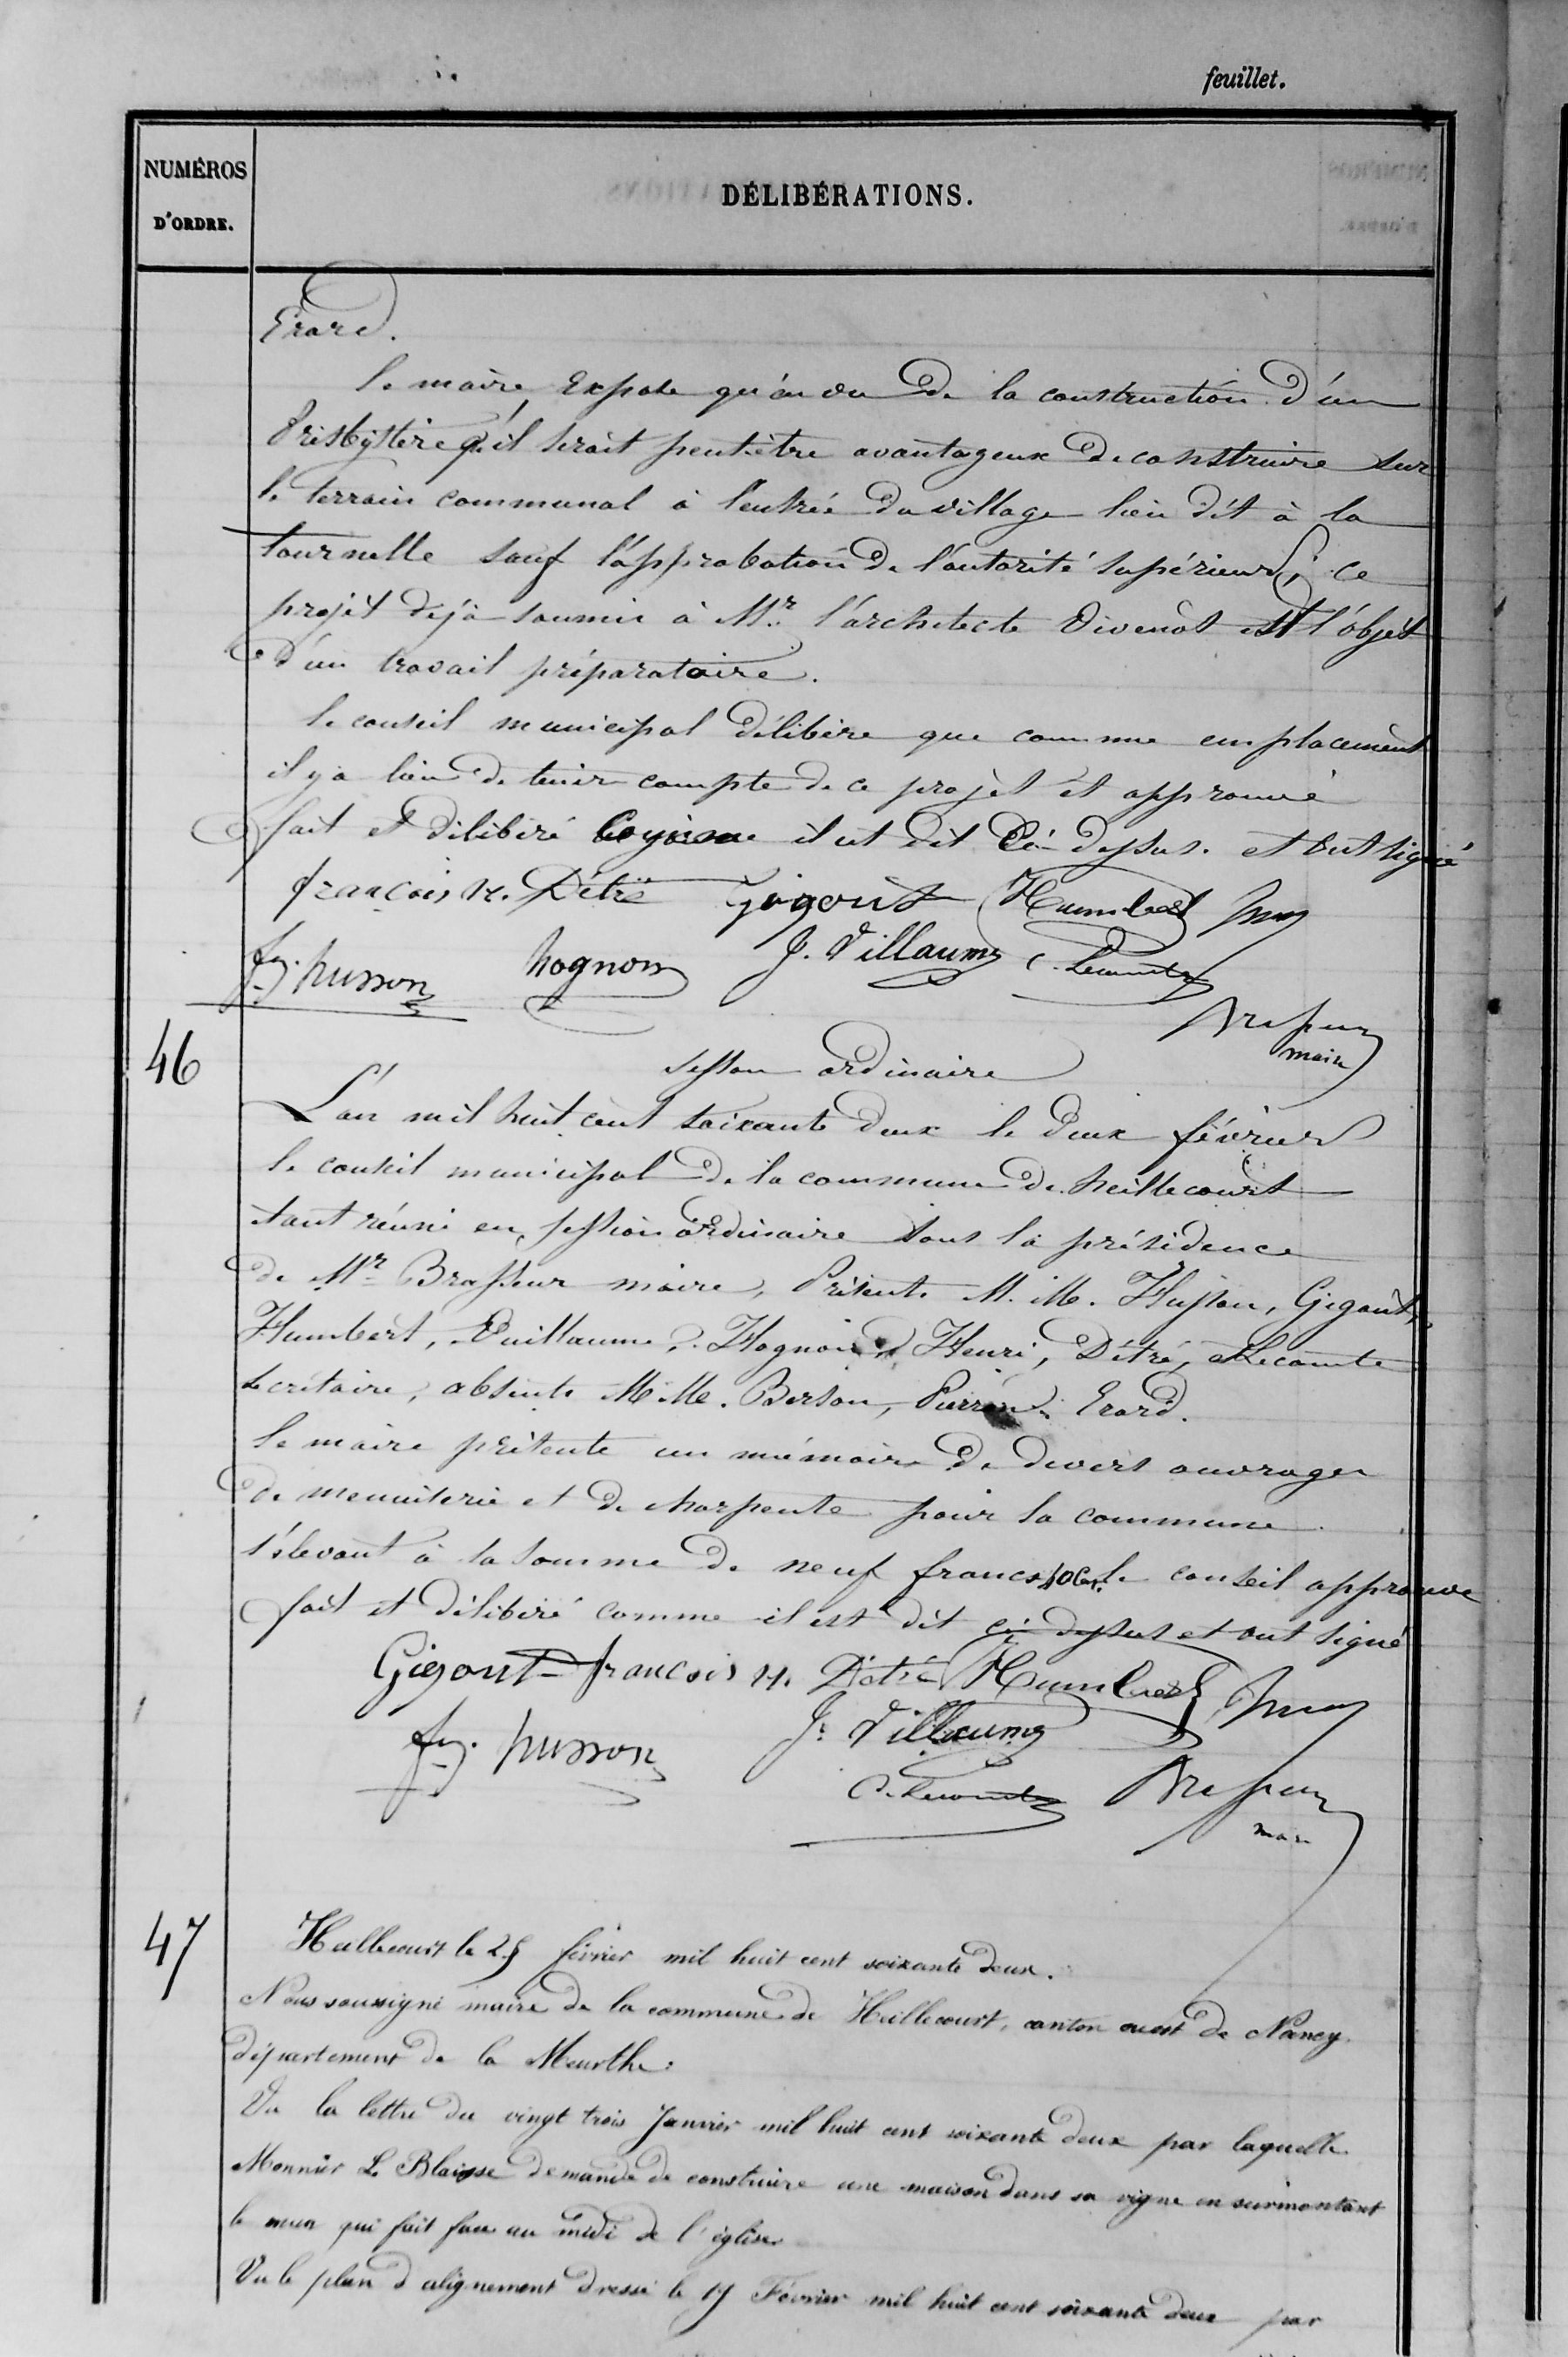 feuillet.
NUMÉROS
D'ORDRE.
DÉLIBÉRATIONS.
Erard.
le maire Expose qu'en vu de la construction d'un
Presbytère qu'il serait peut-être avantageux de construire sur
le terrain communal à l'entrée du village lieu dit à la
tournelle sauf l'approbation de l'autorité supérieur, ce
projet déjà soumis à Mr. l'architecte Divenot est l'objet
d'un travail préparatoire.
le conseil municipal délibère que comme emplacement
il y a lieu de tenir compte de ce projet et approuvé
fait et délibéré comme il est dit Ci-dessus. et ont signé
françois H. Détré Gigout Humbert
fcs. husson hognon J. Villaume C. Lecomte
Brasseur
maire
46
session ordinaire
L'an mil huit cent soixante deux le deux février
le conseil municipal de la commune de heillecourt
étant réuni en session ordinaire sous la présidence
de Mr Brasseur maire, Présents M.M. Husson, Gigout,
Humbert, Vuillaume, Hognon, Henri, Détré, Lecomte
secrétaire, absents M.M. Berson, Pierron, Erard.
le maire présente un mémoire de divers ouvrages
de menuiserie et de charpente pour la commune
s'élevant à la somme de neuf francs 40c. le conseil approuve
fait et délibéré comme il est dit ci dessus et ont signé
Gigout françois H. Détré Humbert
fcs. husson J. Villaume
C. Lecomte Brasseur
maire
47
Heillecourt le 25 février mil huit cent soixante deux.
Nous soussigné maire de la commune de Heillecourt, canton ouest de Nancy.
département de la Meurthe:
Vu la lettre du vingt trois Janvier mil huit cent soixante deux par laquelle
Monsieur Le Blaisse demande de construire une maison dans sa vigne en surmontant
le mur qui fait face au midi de l'église
Vu le plan d'alignement dressé le 17 Février mil huit cent soixante deux par